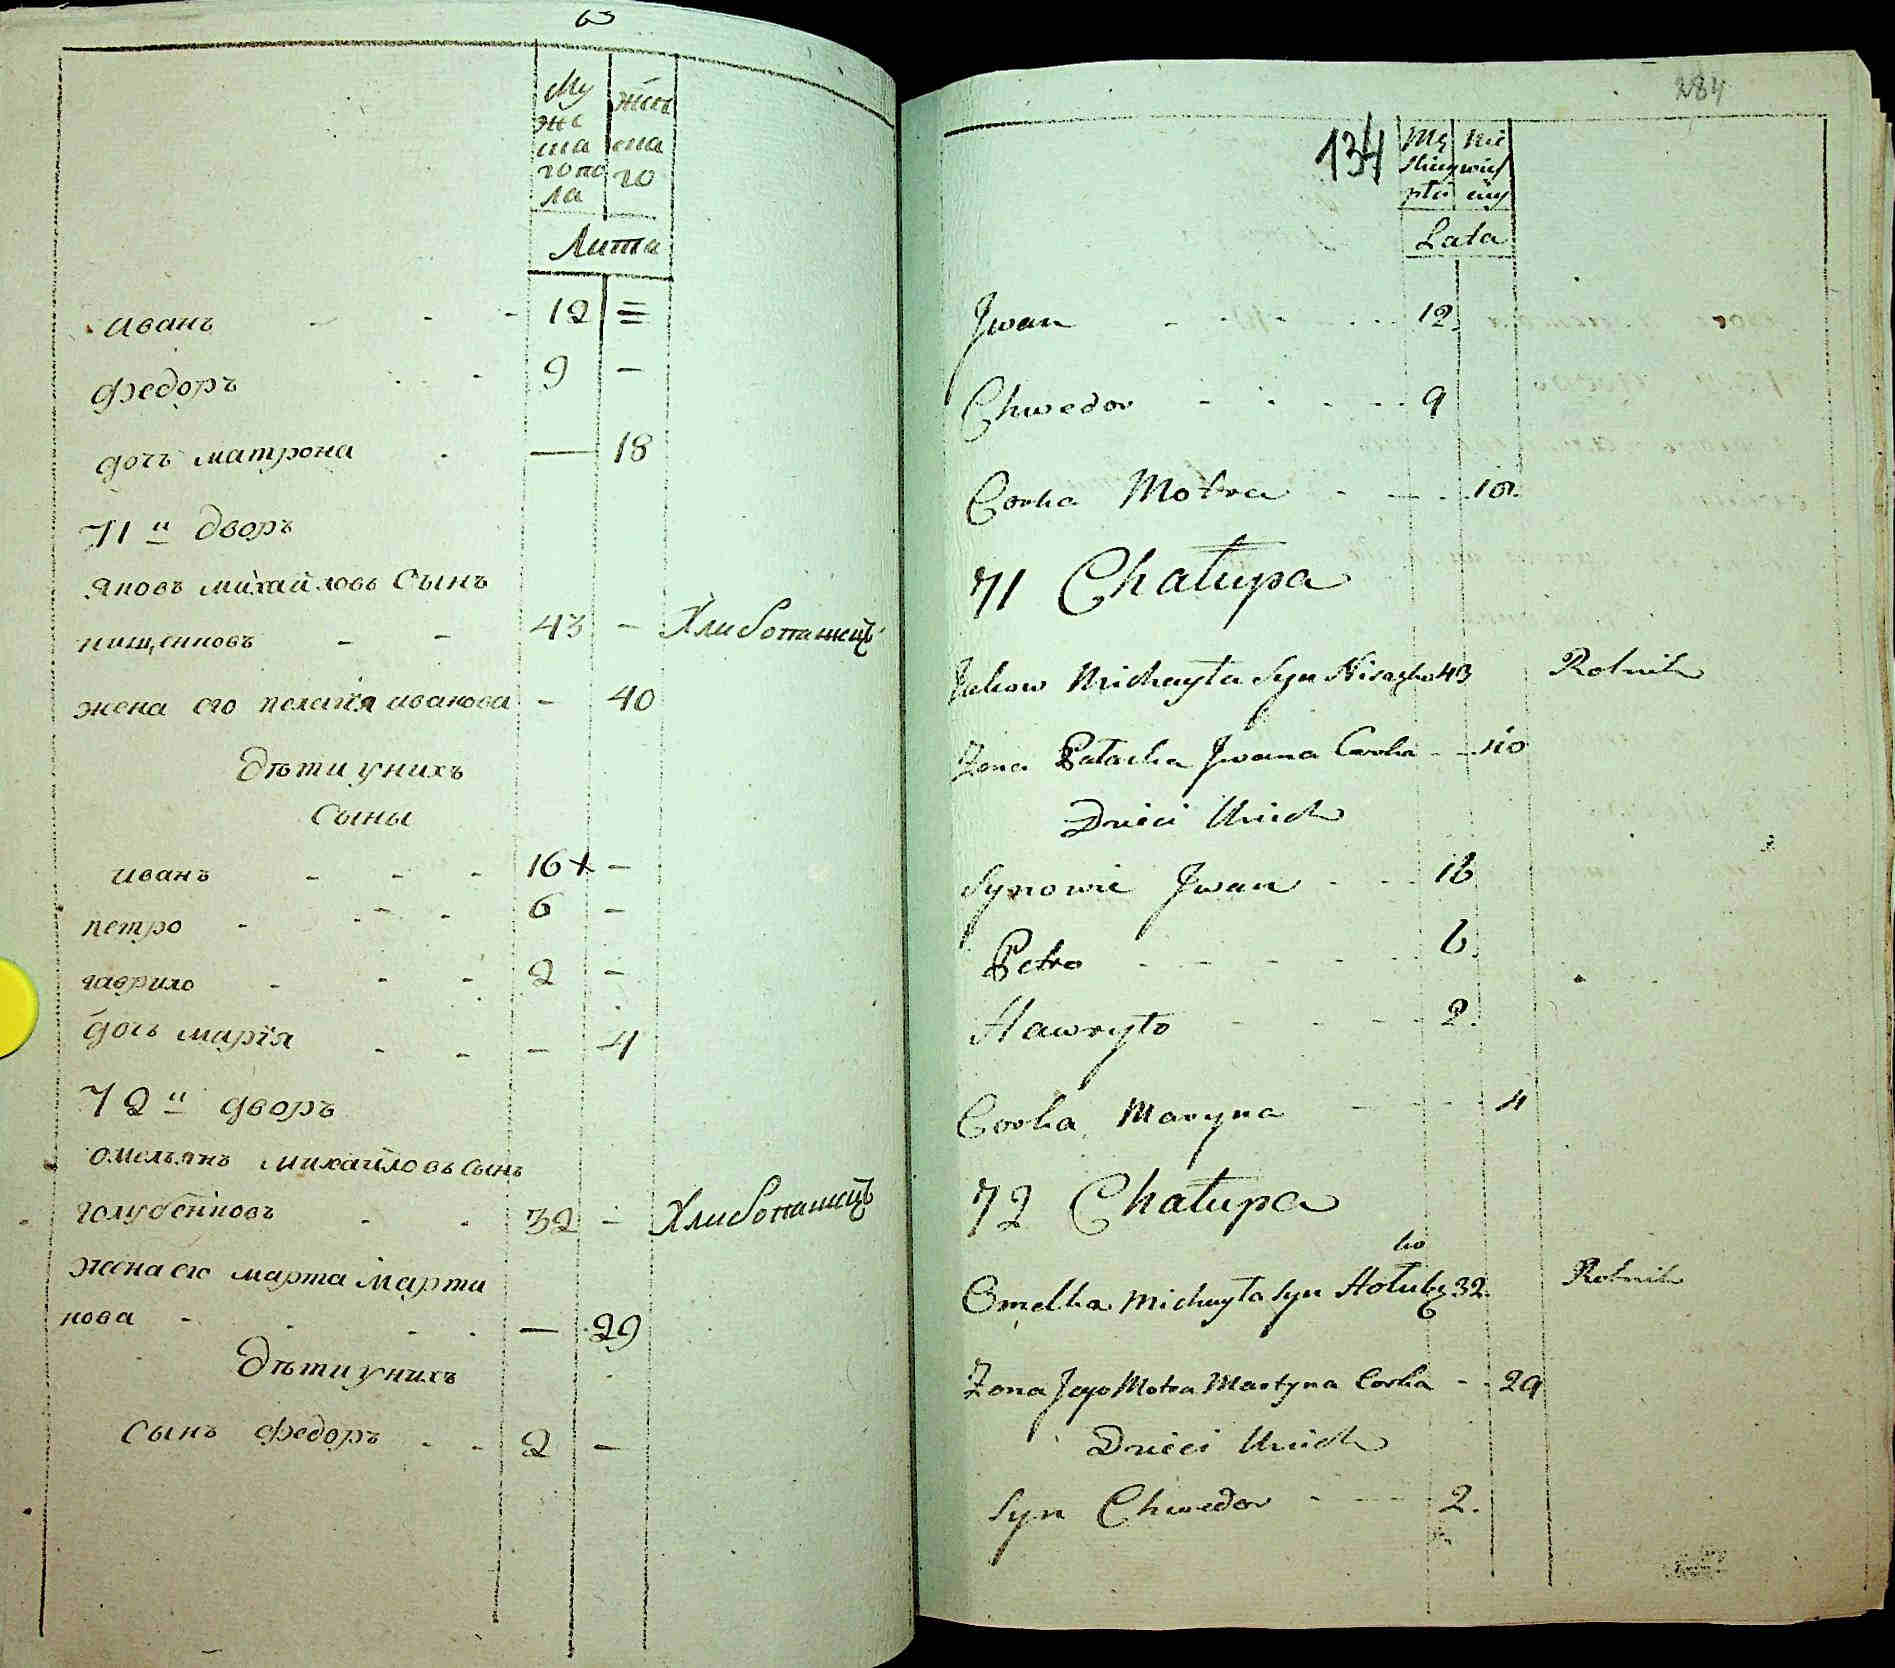 Му жеш
жс ска
ша го
го по
ла
Лита
иванъ - - - 12 =
федоръ - - 9 -
дочъ матрона - — 18
71 й дворъ
яковъ михайловъ Сынъ
нищенковъ - - 43 - Хлибопашецъ
жена его пелагія иванова - 40
дѣти унихъ
Сыны
иванъ - - - 16+ -
петро - - - 6 -
гаврило - - - 2 -
дочь марія - - - 4
72 й дворъ
омельянъ михайловъ сынъ
голубенковъ - - 32 - Хлибопашецъ
жена его марта марти
нова - - - - — 29
дѣти унихъ
Сынъ федоръ - - 2 -
284
134
Mę Nie
skiey wieś
płci ciey
Lata
Jwan - - - - 12.
Chwedor - - - - 9
Corka Motra - - - 18.
71 Chałupa
Jakow Michayła Syn 43 Rolnik
Zona Pałaska Jwana Corka - - 40
Dzieci Unich
Synowie Jwan - - - 16
Petro - - - - - 6.
Hawryło - - - - 2.
Corka Maryna - - - - 4
72 Chałupa
ko
Omelka Michayła Syn Hołubę 32. Rolnik
Zona Jego Motra Martyna Corka - - 29
Dzieci Unich
Syn Chwedor - - - 2.